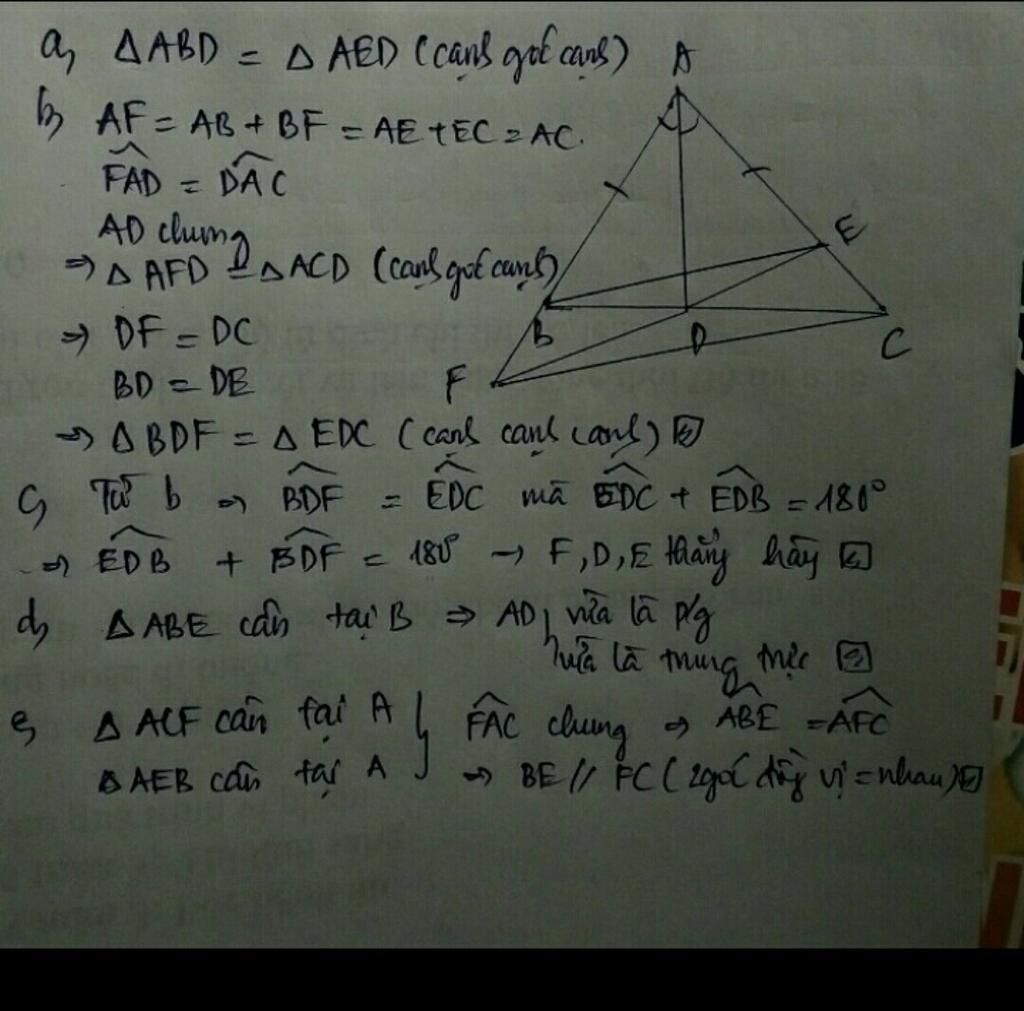 a, △ABD = △AED (cạnh góc cạnh)
b, AF = AB + BF = AE + EC = AC.
FAD = DAC
AD chung
⇒ △AFD = △ACD (cạnh góc cạnh)
⇒ DF = DC
BD = DE
⇒ △BDF = △EDC (cạnh cạnh cạnh)
c, Từ b ⇒ BDF = EDC mà EDC + EDB = 180°
⇒ EDB + BDF = 180° → F, D, E thẳng hàng
d, △ABE cân tại B ⇒ AD vừa là p/g
vừa là trung trực
e, △ACF cân tại A } FAC chung ⇒ ABE = AFC
△AEB cân tại A } ⇒ BE // FC (2 góc đồng vị = nhau)
A
E
B
D
C
F